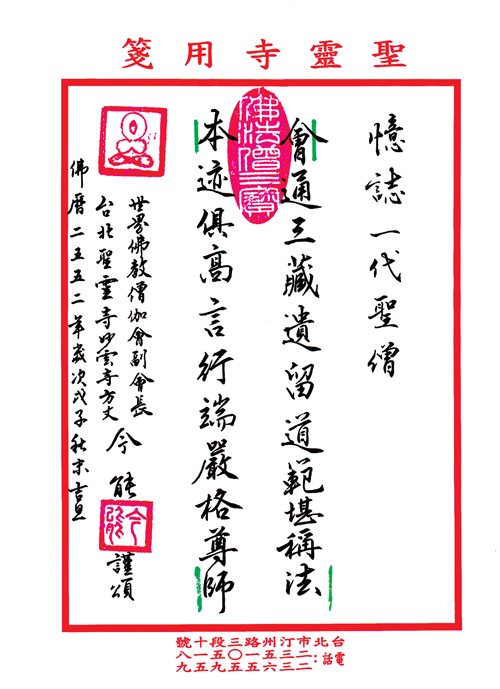 聖靈寺用箋
憶誌一代聖僧
會通三藏遺留道範堪稱法
本迹俱高言行端嚴格尊師
佛法僧三寶
世界佛教僧伽會副會長
台北聖靈寺妙雲寺方丈 今能 謹頌
今能
佛曆二五五二年歲次戊子秋末吉旦
台北市汀州路三段十號
電話：二三五一〇五一八
二三六五五九五九